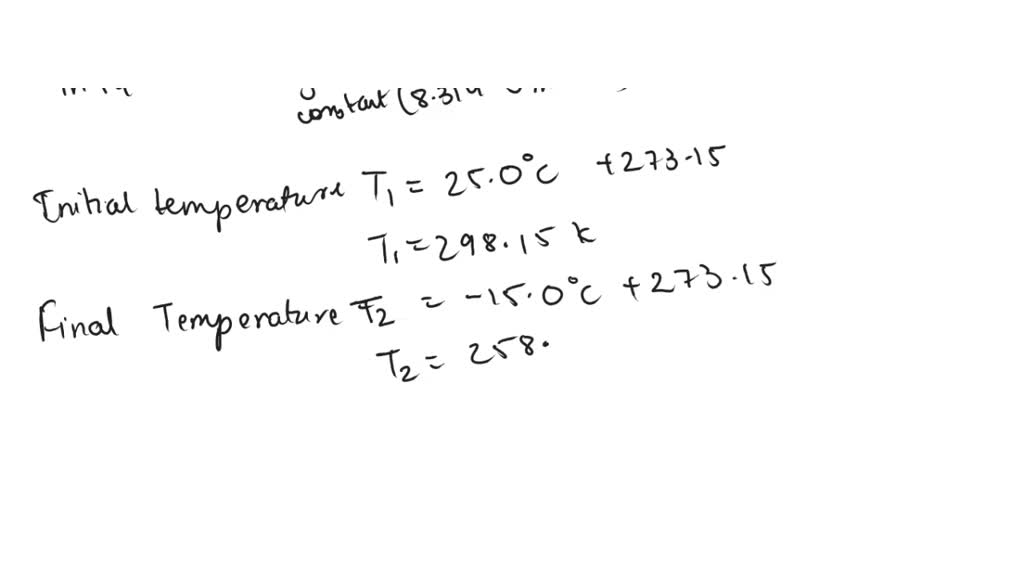 constant (8.314
Initial temperature T₁ = 25.0°C +273.15
T₁ = 298.15 k
Final Temperature T₂ = -15.0°C +273.15
T₂ = 258.